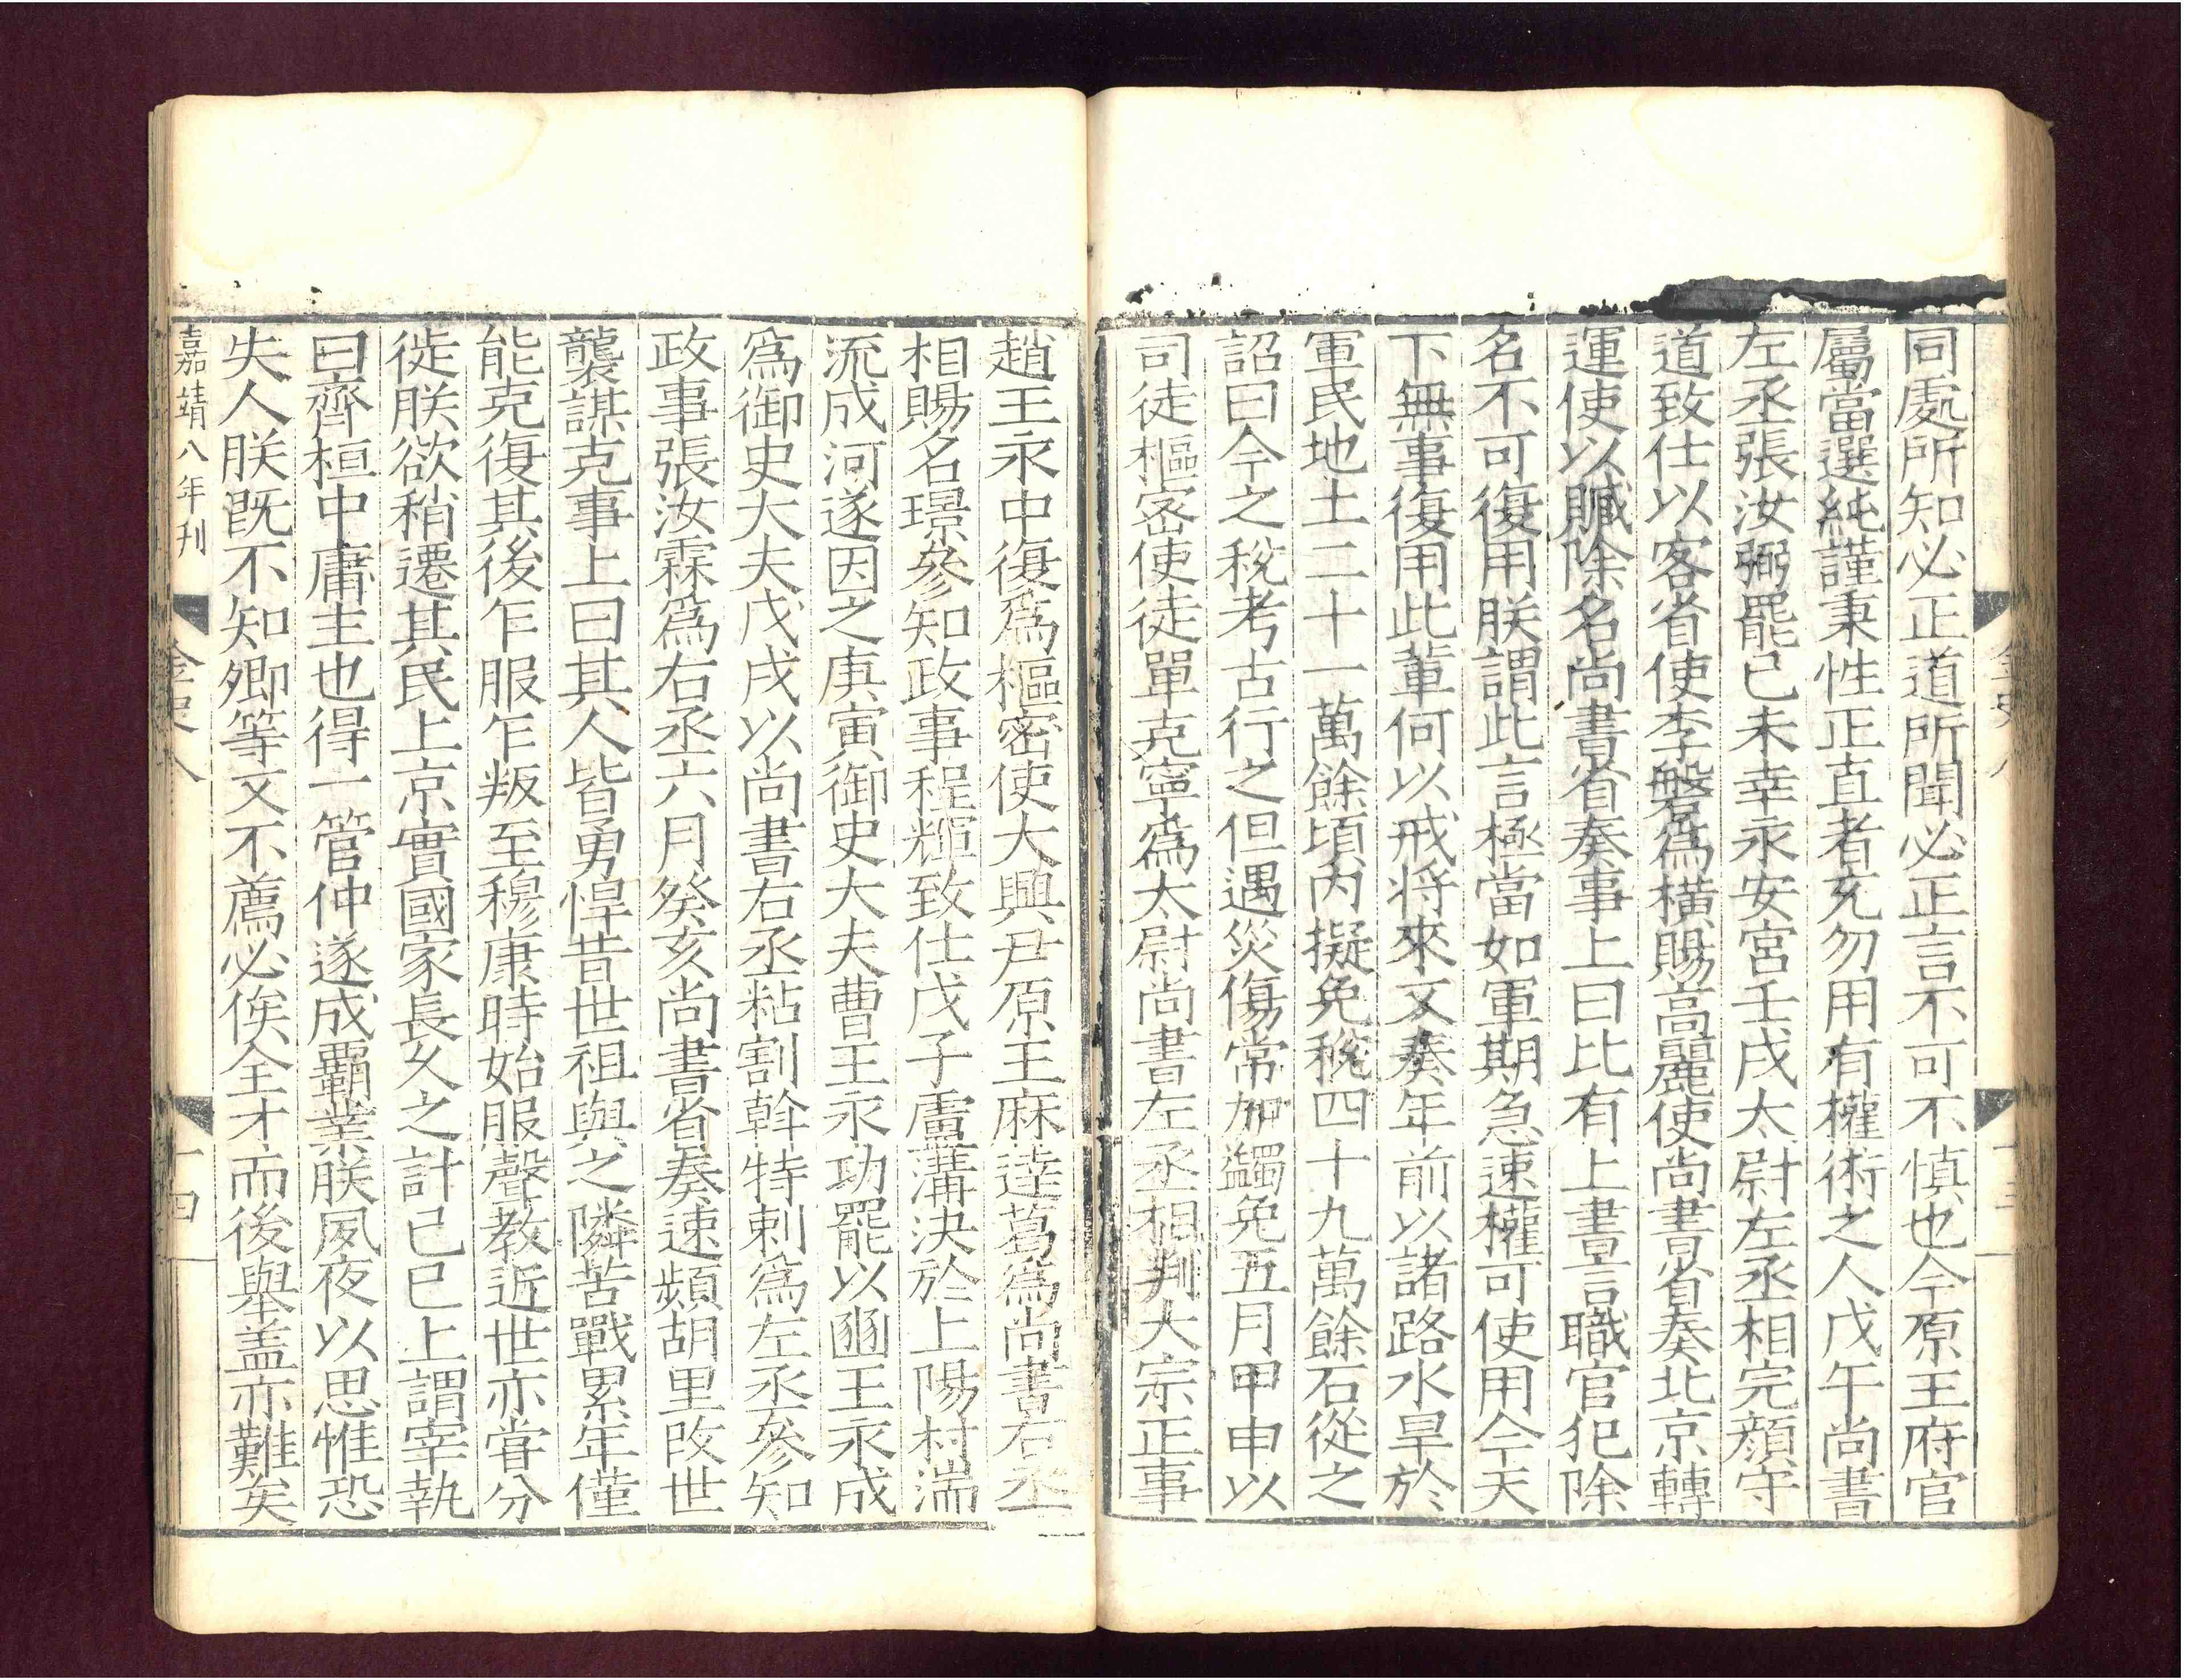 同處所知必正道所聞必正言不可不慎也今原王府官
屬當選純謹秉性正直者充勿用有權術之人戊午尚書
左丞張汝弼罷己未幸永安宮壬戌太尉左丞相完顏守
道致仕以客省使李磐爲橫賜高麗使尚書省奏北京轉
運使以贓除名尚書省奏事上曰比有上書言職官犯除
名不可復用朕謂此言極當如軍期急速權可使用今天
下無事復用此輩何以戒將來又奏年前以諸路水旱於
軍民地土二十一萬餘頃內擬免稅四十九萬餘石從之
詔曰今之稅考古行之但遇災傷常加蠲免五月甲申以
司徒樞密使徒單克寧爲太尉尚書左丞相判大宗正事
趙王永中復爲樞密使大興尹原王麻達葛爲尚書右丞
相賜名璟參知政事程輝致仕戊子盧溝決於上陽村湍
流成河遂因之庚寅御史大夫曹王永功罷以豳王永成
爲御史大夫戊戌以尚書右丞粘割斡特剌爲左丞參知
政事張汝霖爲右丞六月癸亥尚書省奏速頻胡里改世
襲謀克事上曰其人皆勇悍昔世祖與之隣苦戰累年僅
能克復其後乍服乍叛至穆康時始服聲教近世亦嘗分
徙朕欲稍遷其民上京實國家長久之計己巳上謂宰執
曰齊桓中庸主也得一管仲遂成覇業朕夙夜以思惟恐
失人朕既不知卿等又不薦必俟全才而後舉盖亦難矣
嘉靖八年刊
金史八
十四